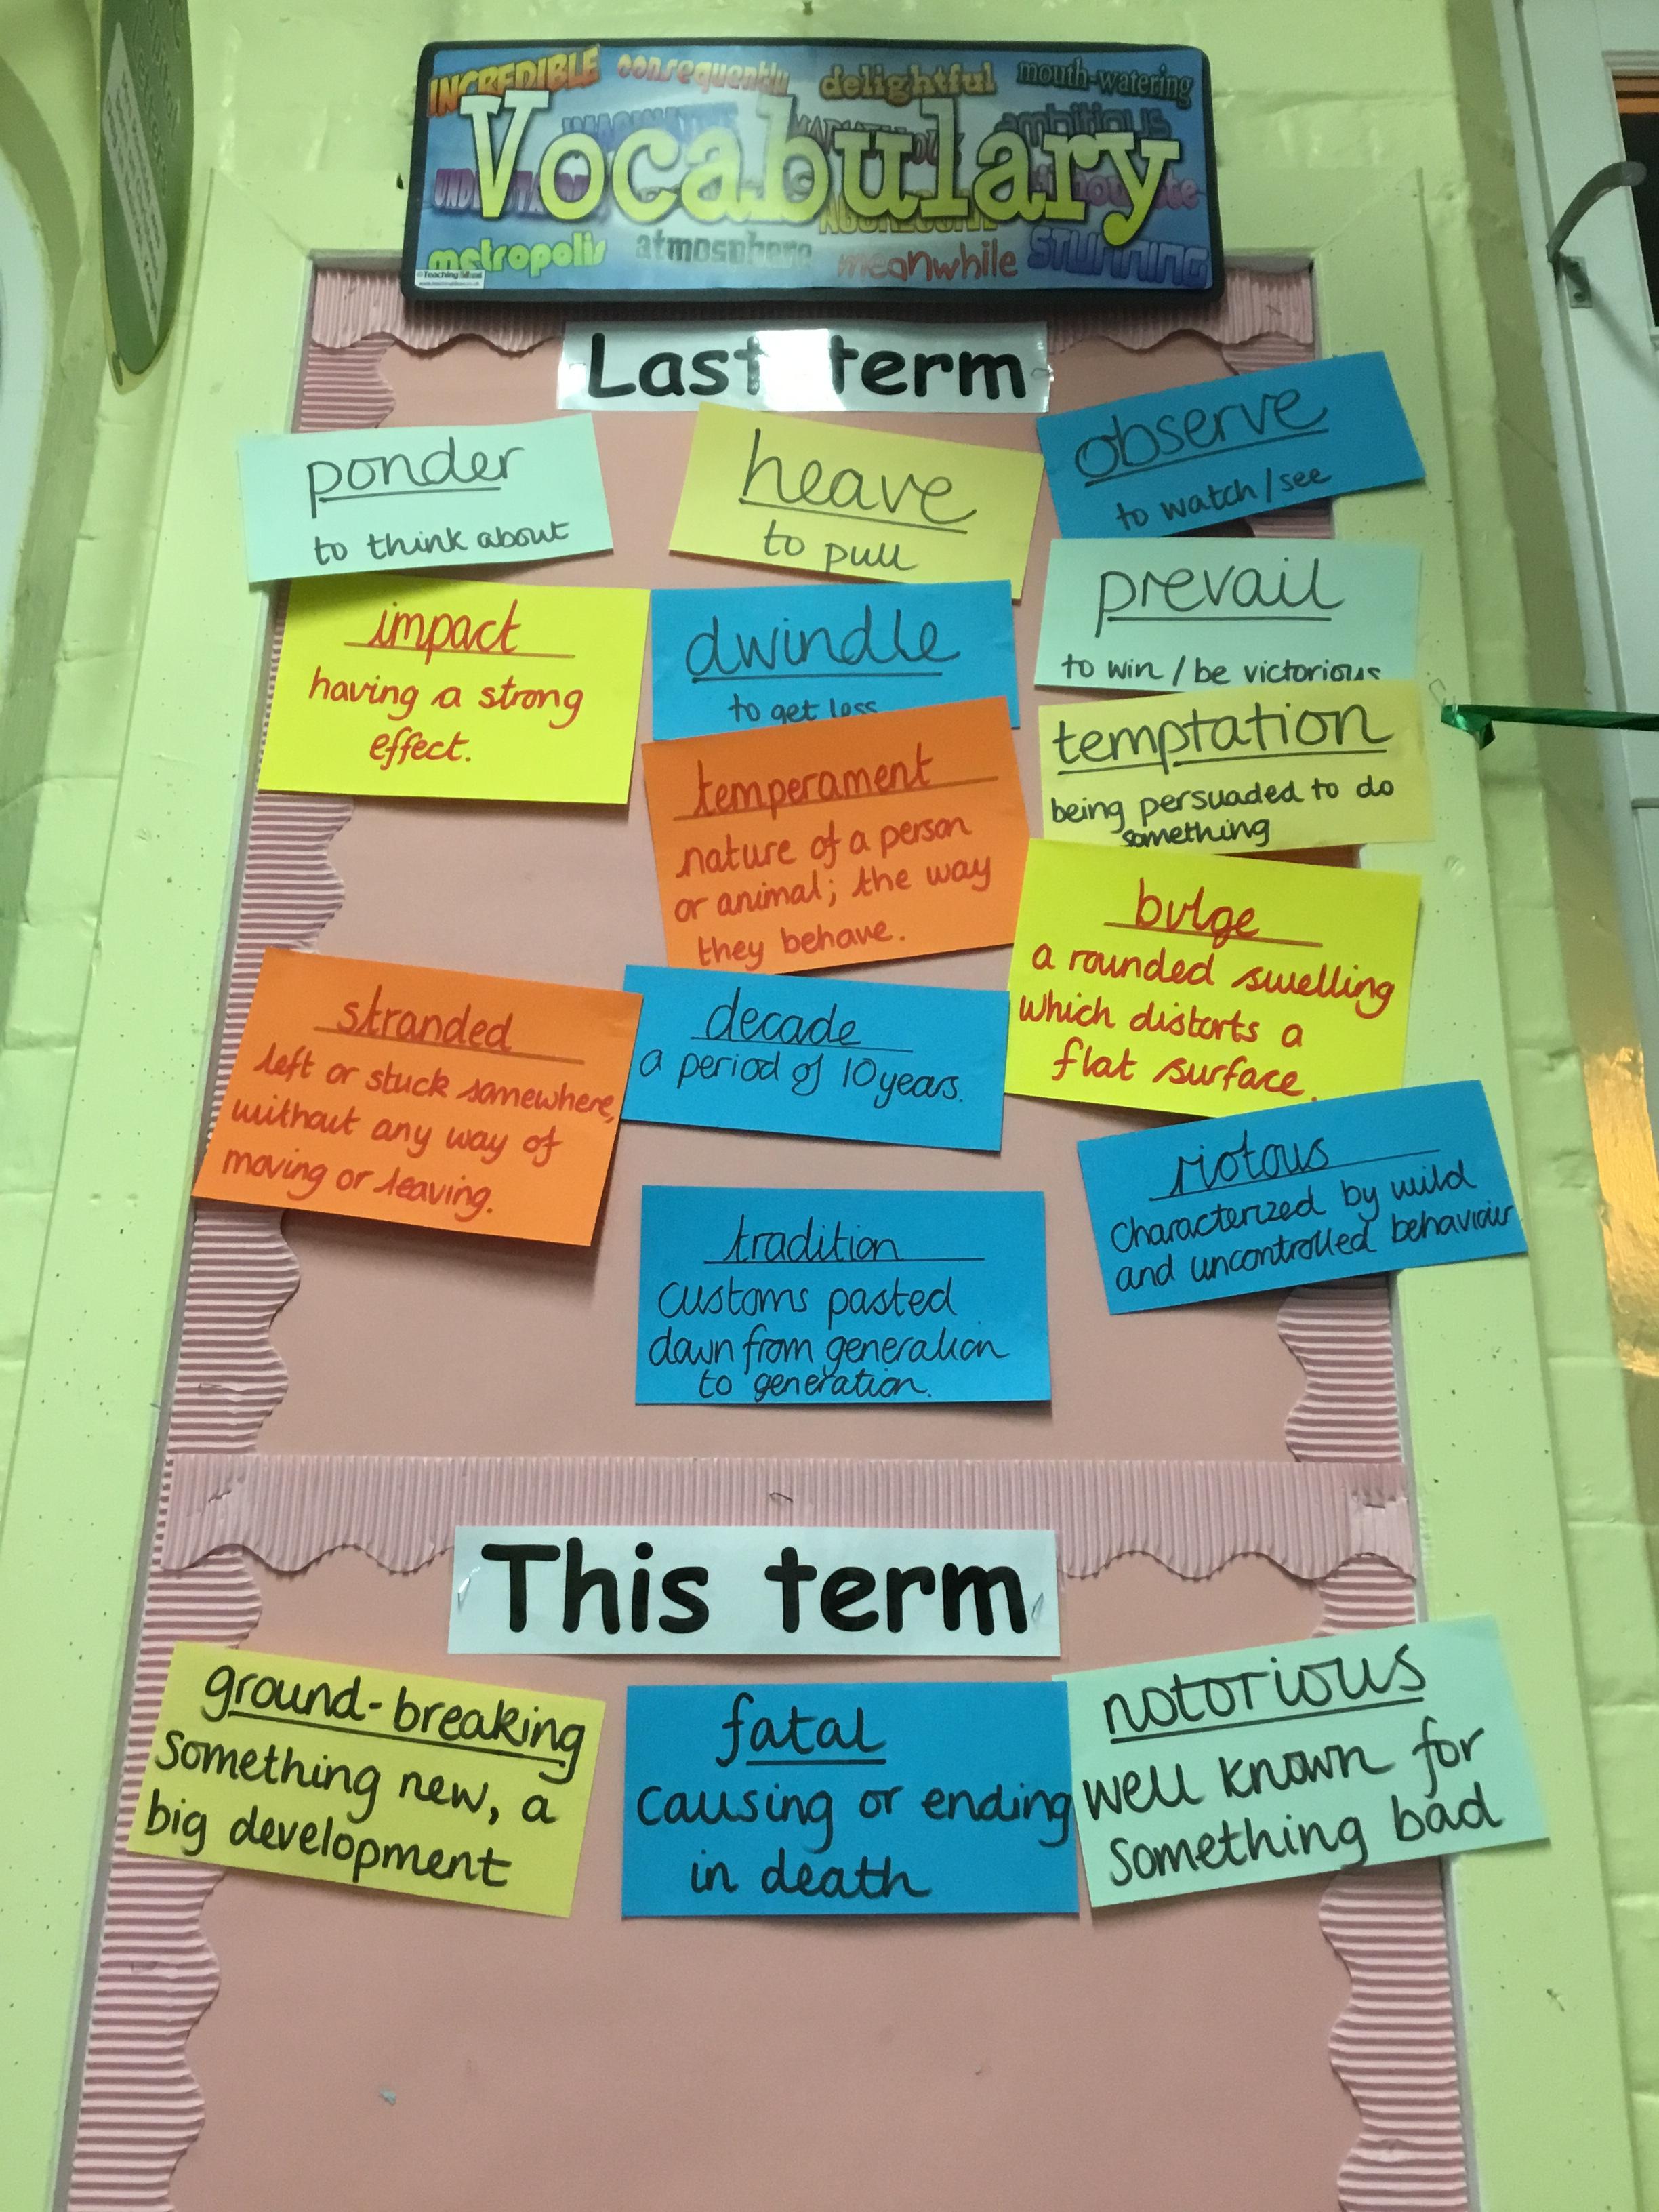 INCREDIBLE consequently delightful mouth-watering
Vocabulary
ambitious
metropolis atmosphere meanwhile STUNNING
Last term
ponder
to think about
heave
to pull
observe
to watch/see
impact
having a strong
effect.
dwindle
to get less
prevail
to win / be victorious
temperament
nature of a person
or animal; the way
they behave.
temptation
being persuaded to do
something
bulge
a rounded swelling
which distorts a
flat surface.
stranded
left or stuck somewhere,
without any way of
moving or leaving.
decade
a period of 10 years.
riotous
characterized by wild
and uncontrolled behaviour
tradition
customs pasted
down from generation
to generation.
This term
ground-breaking
Something new, a
big development
fatal
causing or ending
in death
notorious
well known for
something bad